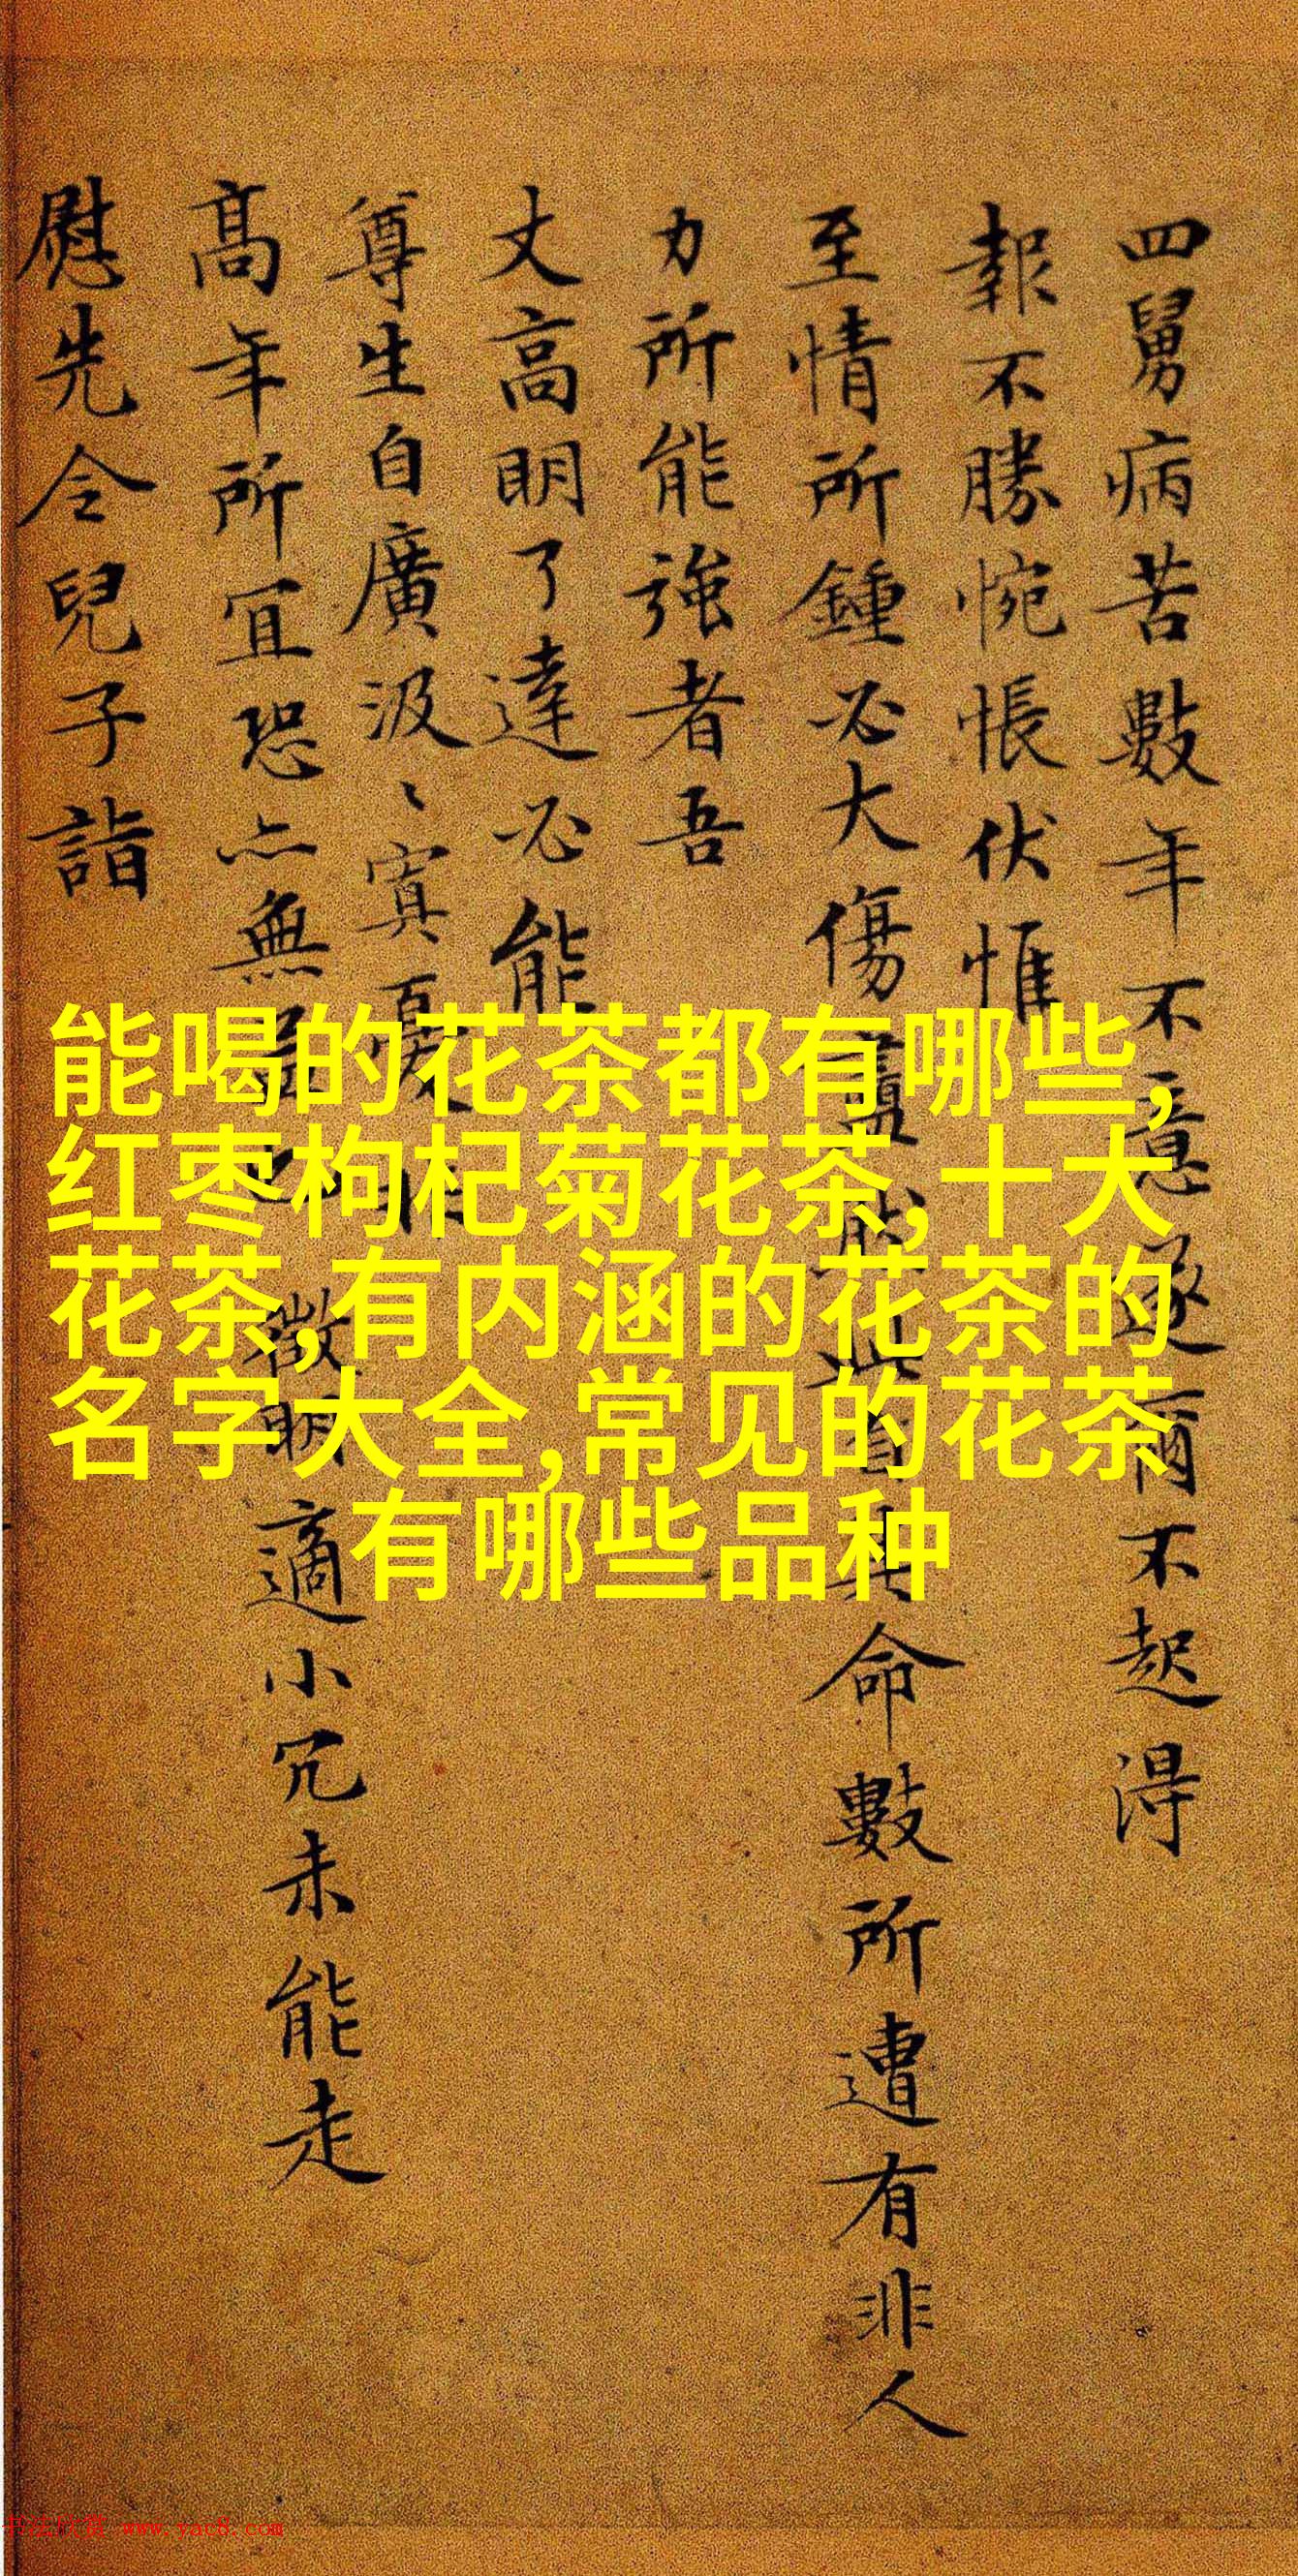 四舅病苦數年不意遂爾不起得
報不勝惋悵伏惟
至情所鍾必大傷 命數所遭有非人
力所能強者吾
丈高明了達必能
尊生自廣汲〻寘
高年所宜恐亦無 徵明適小冗未能走
慰先令兒子詣
能喝的花茶都有哪些,
红枣枸杞菊花茶,十大
花茶,有内涵的花茶的
名字大全,常见的花茶
有哪些品种
书法欣赏 www.yac8.com